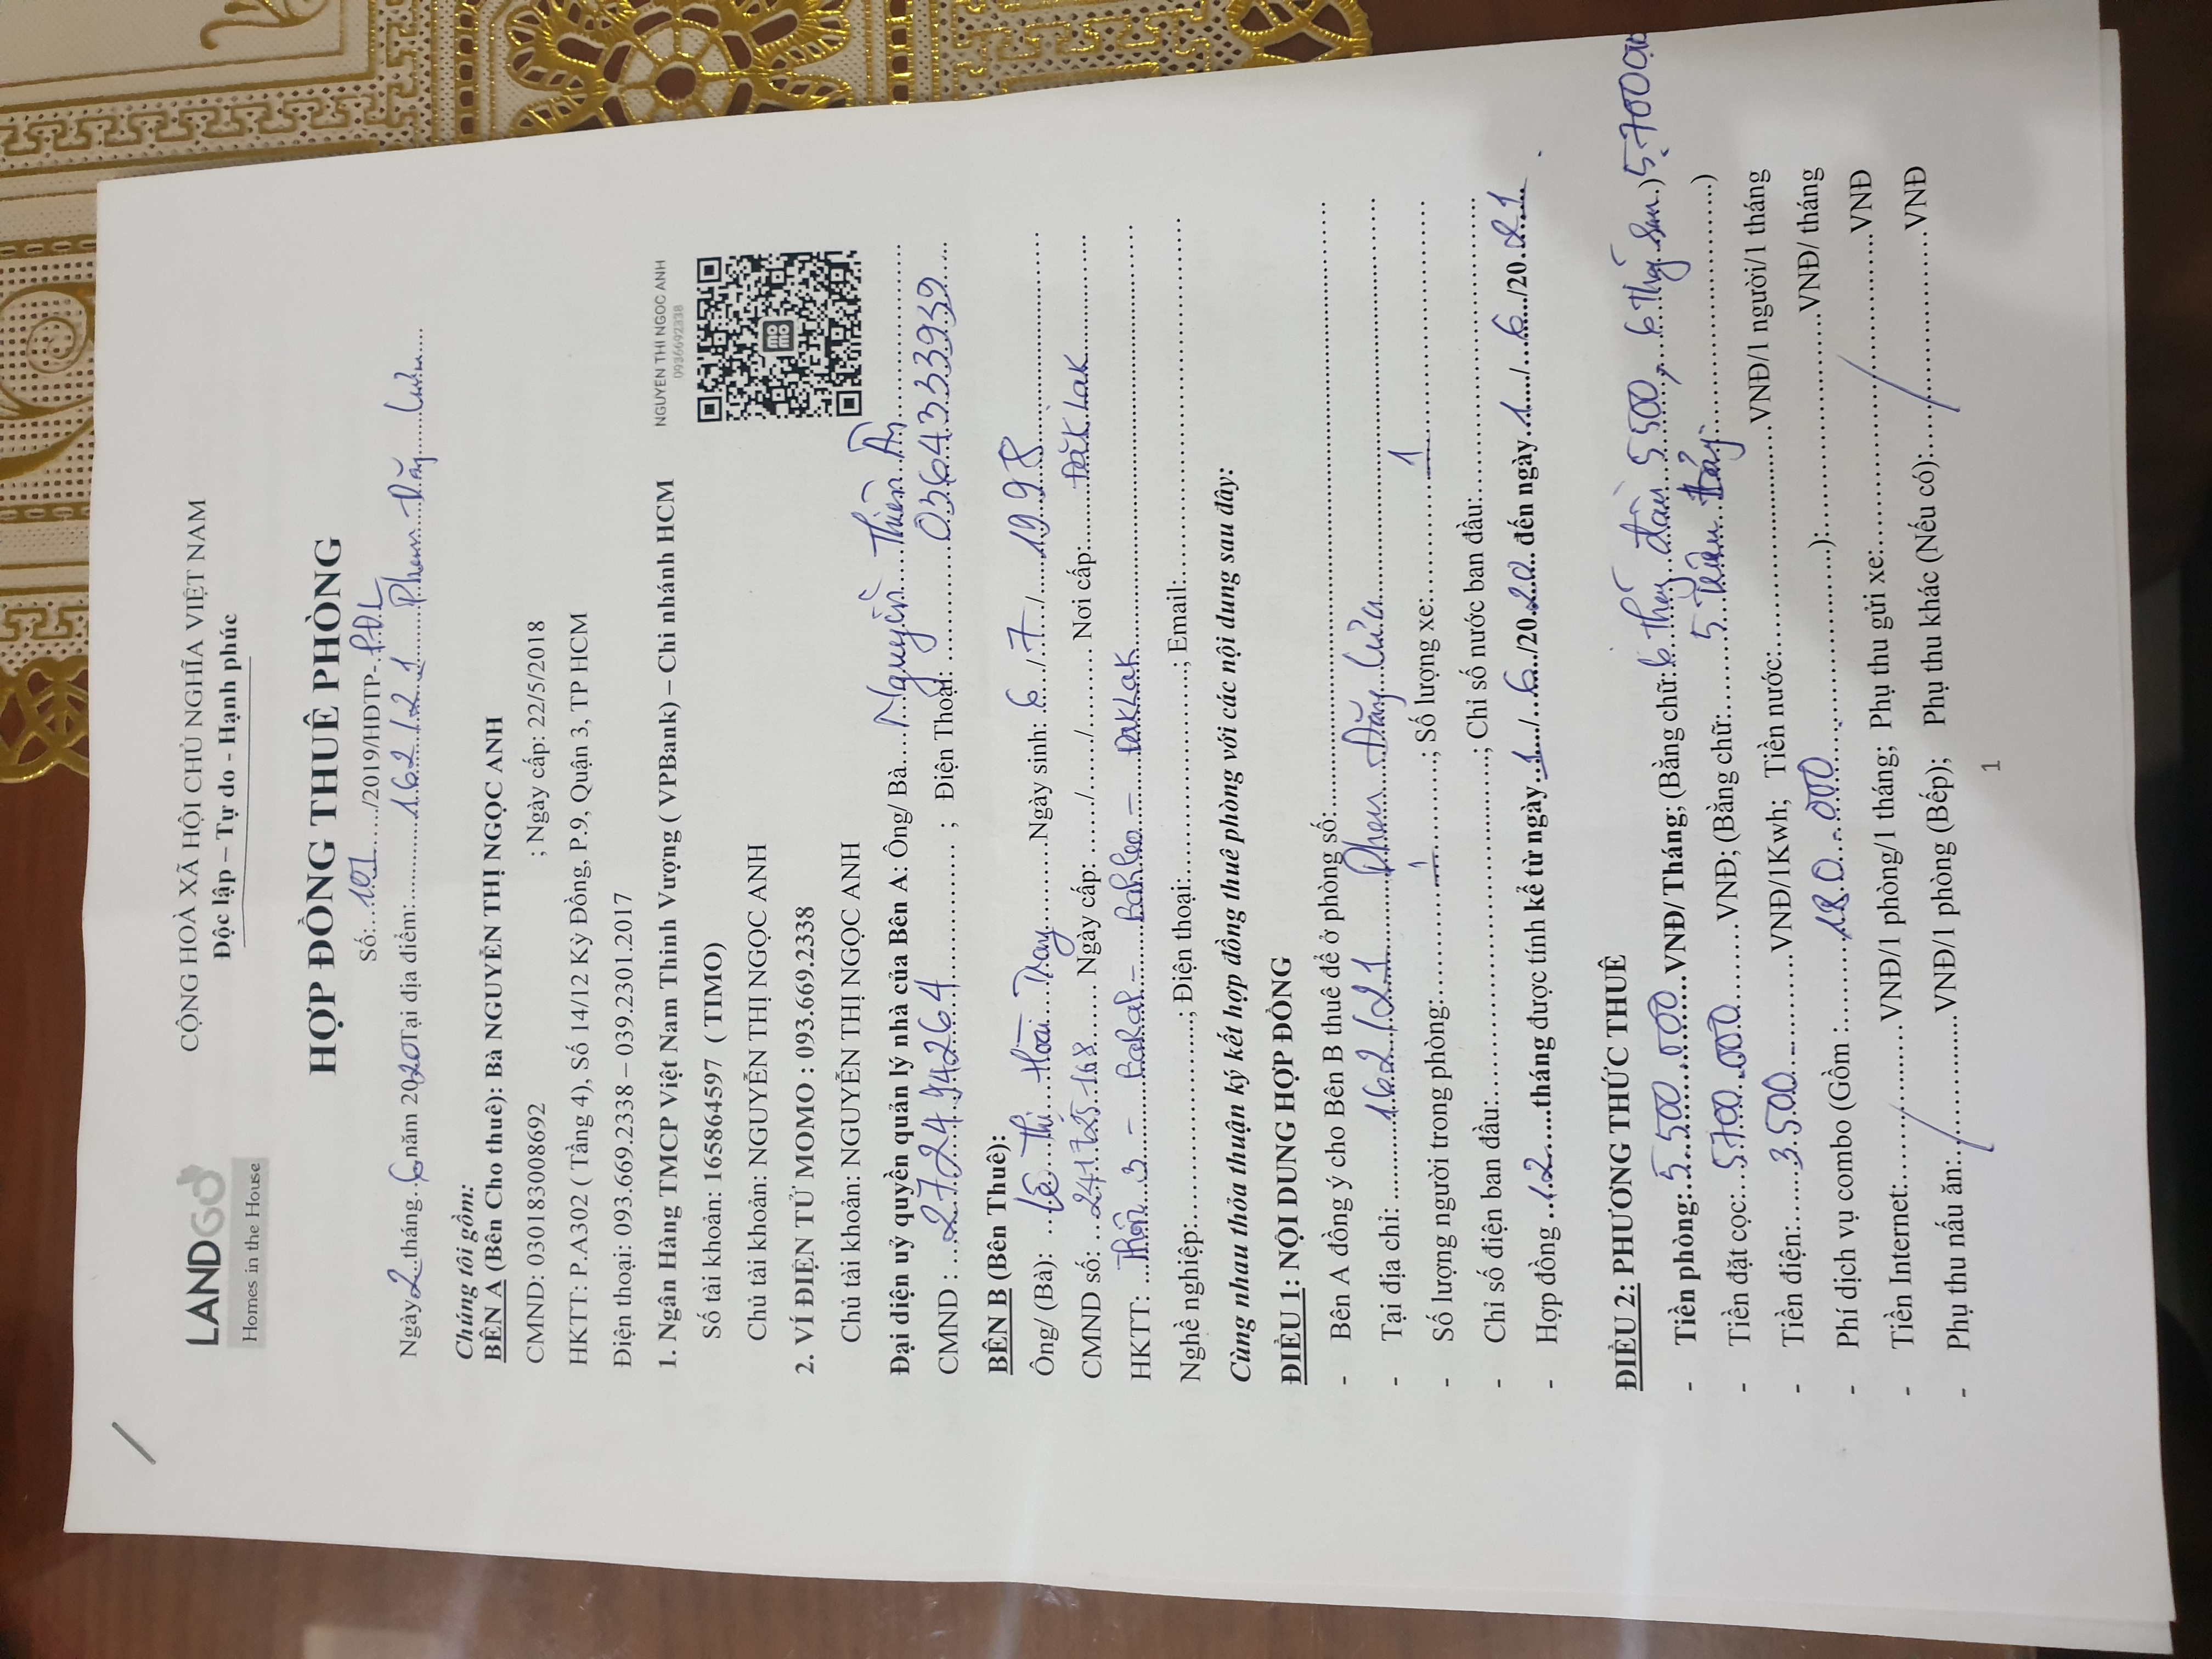 LANDGO
Homes in the House
CỘNG HOÀ XÃ HỘI CHỦ NGHĨA VIỆT NAM
Độc lập – Tự do - Hạnh phúc
HỢP ĐỒNG THUÊ PHÒNG
Số:...101....../2019/HĐTP-.P.Đ.L
Ngày 2 tháng 6 năm 2020 Tại địa điểm: 162/21 Phan Đăng Lưu
Chúng tôi gồm:
BÊN A (Bên Cho thuê): Bà NGUYỄN THỊ NGỌC ANH
CMND: 030183008692 ; Ngày cấp: 22/5/2018
HKTT: P.A302 ( Tầng 4), Số 14/12 Kỳ Đồng, P.9, Quận 3, TP HCM
Điện thoại: 093.669.2338 – 039.2301.2017
1. Ngân Hàng TMCP Việt Nam Thinh Vượng ( VPBank) – Chi nhánh HCM
Số tài khoản: 165864597 ( TIMO)
Chủ tài khoản: NGUYỄN THỊ NGỌC ANH
2. VÍ ĐIỆN TỬ MOMO : 093.669.2338
Chủ tài khoản: NGUYỄN THỊ NGỌC ANH
NGUYEN THI NGOC ANH
0936692338
Đại diện uỷ quyền quản lý nhà của Bên A: Ông/ Bà Nguyễn Thiên Ân
CMND : 272442264 ; Điện Thoại: 0364333939
BÊN B (Bên Thuê):
Ông/ (Bà): Lê Thị Hoài Ngày sinh: 6/7/1998
CMND số: 241725168 Ngày cấp: ....../......./......... Nơi cấp: Đăk Lak
HKTT: Thôn 3 - - - DakLak
Nghề nghiệp:..................; Điện thoại:..................; Email:..................
Cùng nhau thỏa thuận ký kết hợp đồng thuê phòng với các nội dung sau đây:
ĐIỀU 1: NỘI DUNG HỢP ĐỒNG
- Bên A đồng ý cho Bên B thuê để ở phòng số:..................
- Tại địa chỉ: 162/21 Phan Đăng Lưu
- Số lượng người trong phòng: 1 ; Số lượng xe: 1
- Chỉ số điện ban đầu:..................; Chỉ số nước ban đầu:..................
- Hợp đồng 12 tháng được tính kể từ ngày 1/6/2020 đến ngày 1/6/2021
ĐIỀU 2: PHƯƠNG THỨC THUÊ
- Tiền phòng: 5.500.000 VNĐ/ Tháng; (Bằng chữ: 6 đầu 5500, 6 sau ) 5.700
- Tiền đặt cọc: 5.700.000 VNĐ; (Bằng chữ: 5. )
- Tiền điện: 3.500 VNĐ/1Kwh; Tiền nước:..................VNĐ/1 người/1 tháng
- Phí dịch vụ combo (Gồm : 180.000 ):..................VNĐ/ tháng
- Tiền Internet:.......... VNĐ/1 phòng/1 tháng; Phụ thu gửi xe:..................VNĐ
- Phụ thu nấu ăn:..........VNĐ/1 phòng (Bếp); Phụ thu khác (Nếu có):..................VNĐ
1